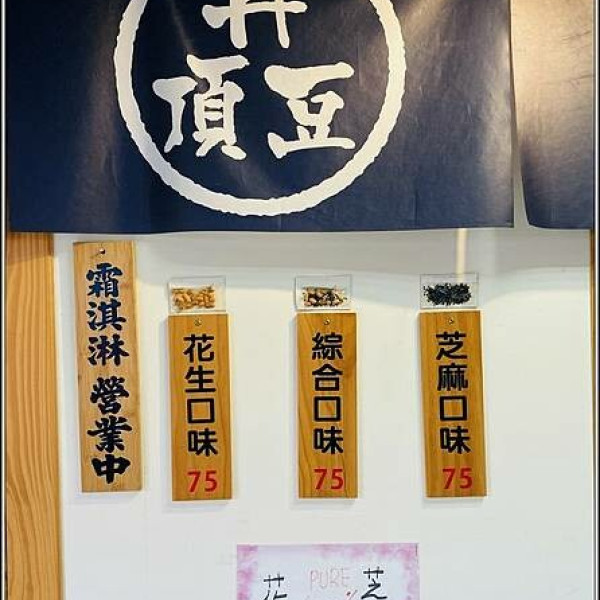 井
頂豆
霜淇淋 營業中
花生口味
75
綜合口味
75
芝麻口味
75
PURE
花
芝